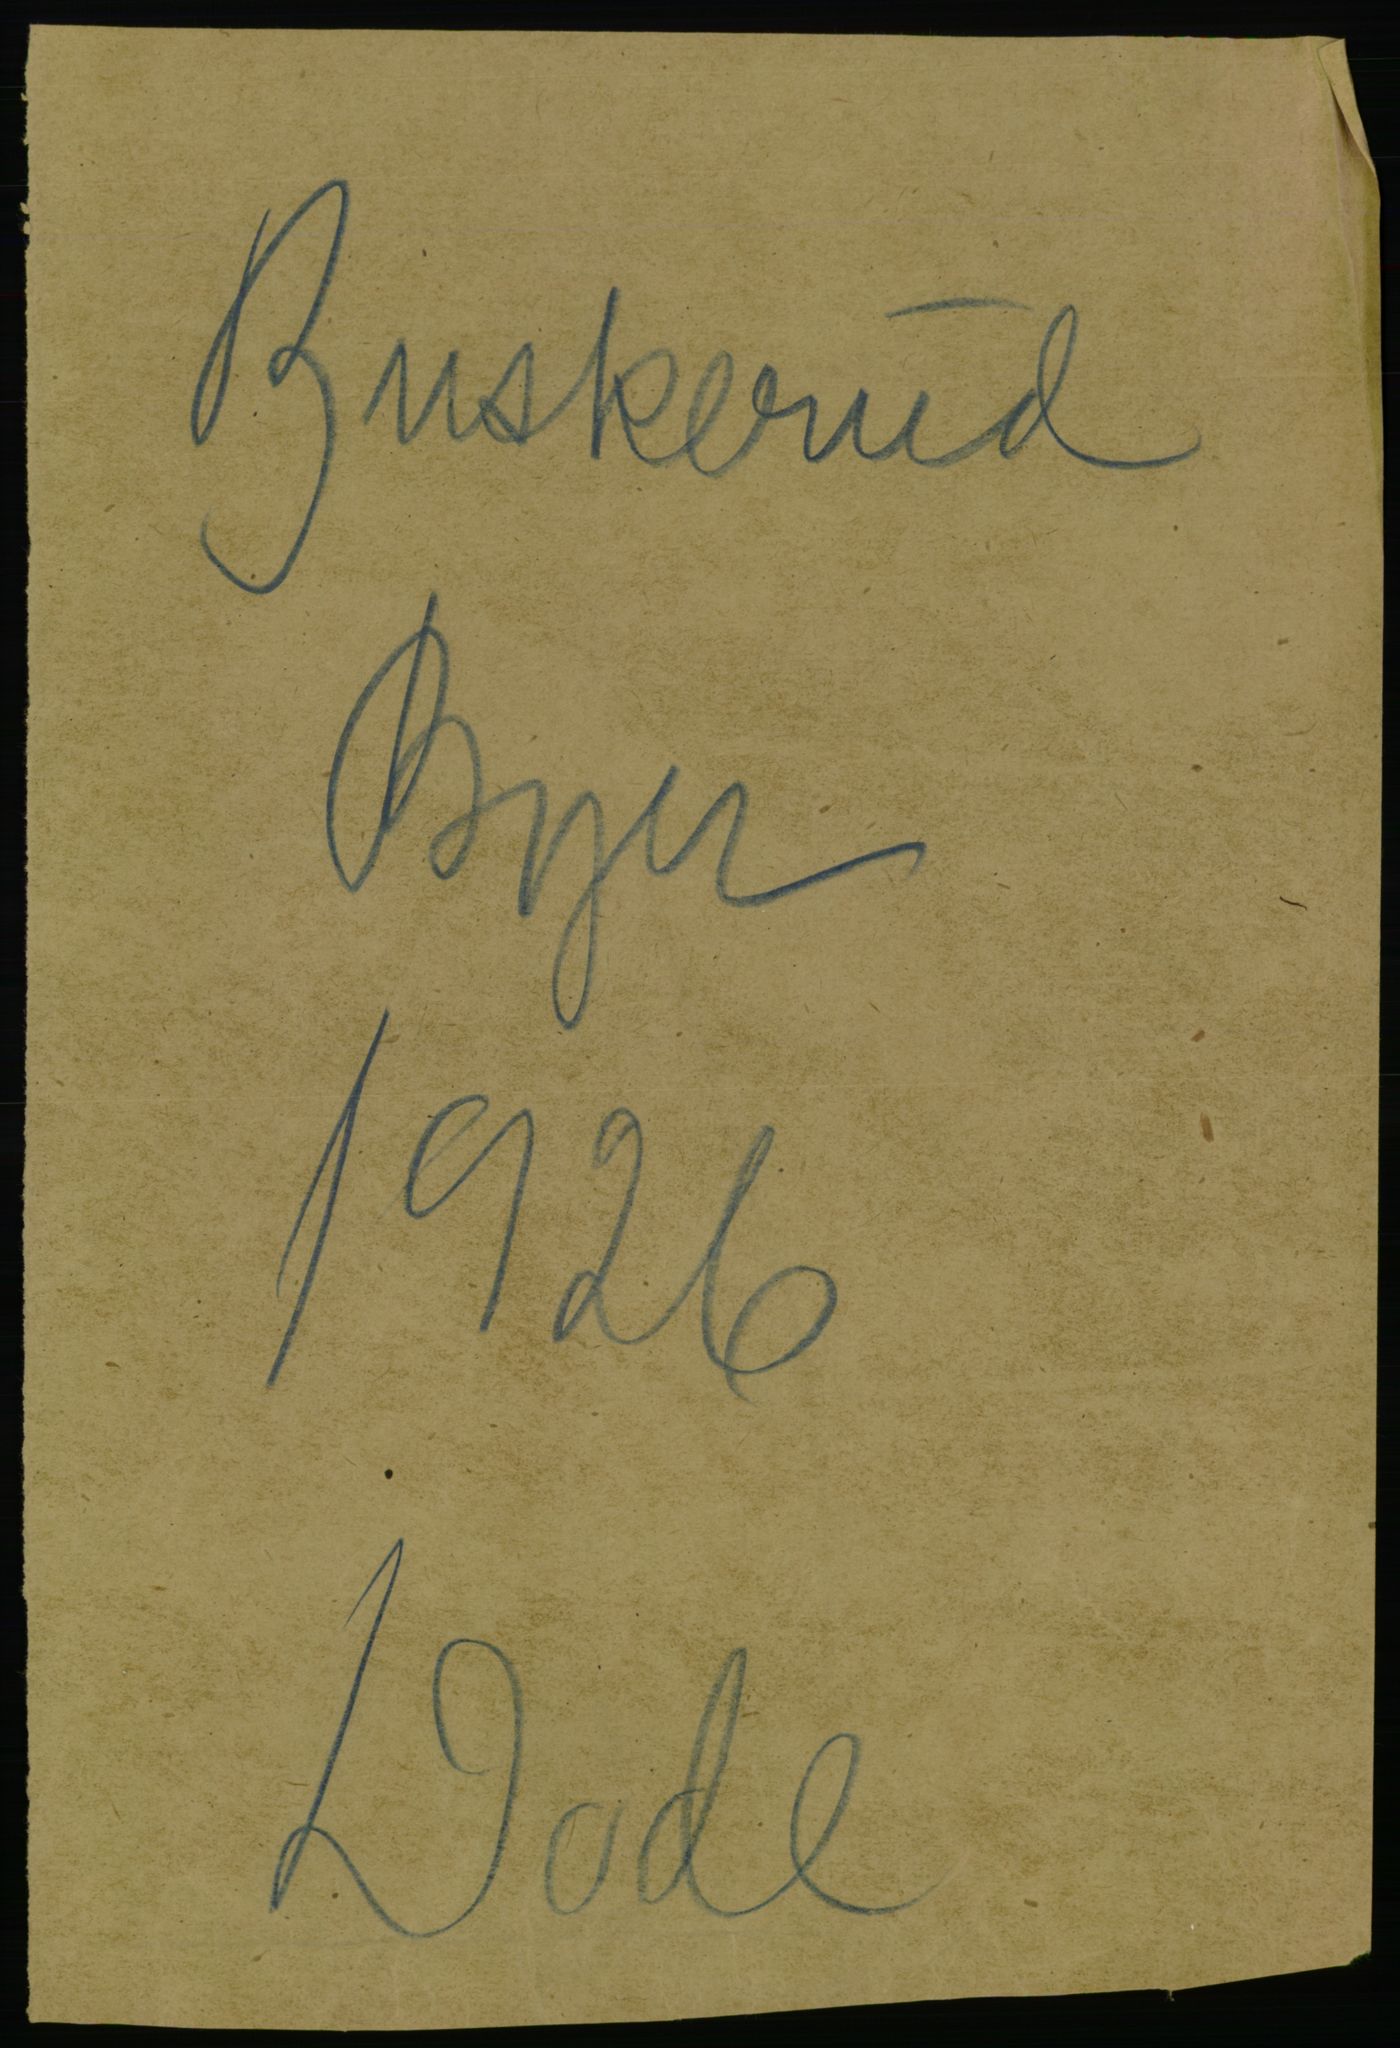 Buskerud
Byer
1926
Døde